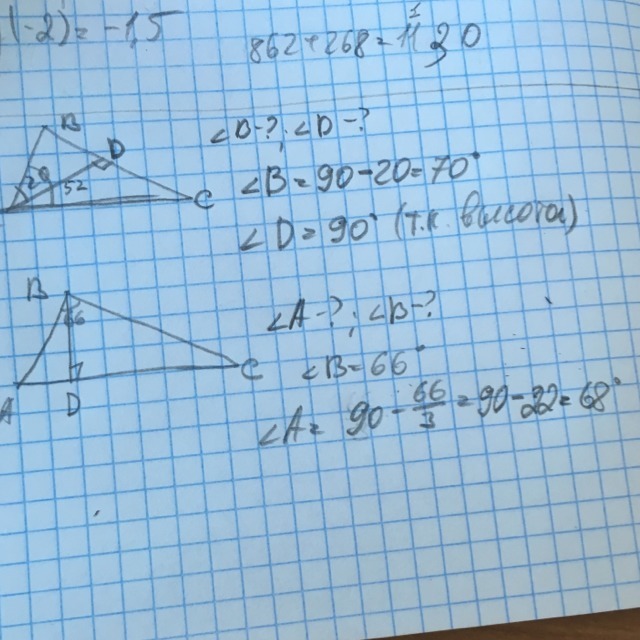 (-2)=-1,5
862+268=1130
B
D
20
52
C
∠B-?; ∠D-?
∠B=90-20=70°
∠D=90° (т.к. высота)
B
66
A
D
C
∠A-?; ∠B-?
∠B=66°
∠A= 90-66/3=90-22=68°